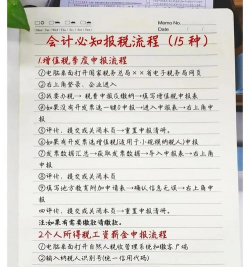 Memo No.
Date
会计必知报税流程（15种）
1.增值税季度申报流程
①电脑桌面打开国家税务总局××省电子税务局网页
②右上角登录，企业进入
③我要办税→税费申报及缴纳→填写增值税申报表
④如果没有开发票选一键0申报→进入申报表→右上角申
报
⑤评论，提交或关闭本页→重置申报清册。
⑥如果有开发票选增值税(适用于小规模纳税人)申报
⑦发票数据汇总→获取票表数据→导入申报表→右上角
申报
⑧评论，提交或关闭本页→重置申报清册。
⑨填写地方教育附加申请表→确认信息无误→右上角申
报
⑩评论，提交或关闭本页→重置申报清册。
注：如果有需要缴款请缴款。
2.个人所得税工资薪金申报流程
①电脑桌面打开自然人税收管理系统扣缴客户端
②输入纳税人识别号(统一信用代码)